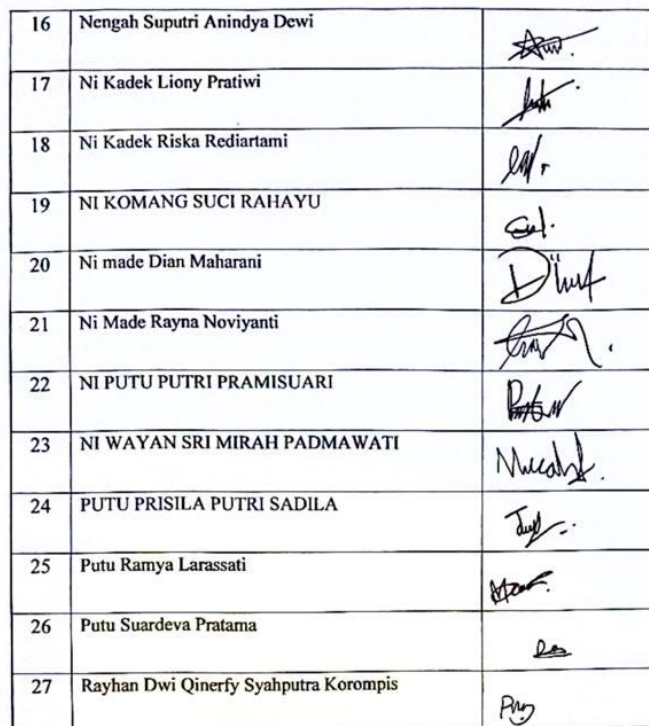 16 Nengah Suputri Anindya Dewi
17 Ni Kadek Liony Pratiwi
18 Ni Kadek Riska Rediartami
19 NI KOMANG SUCI RAHAYU
20 Ni made Dian Maharani
21 Ni Made Rayna Noviyanti
22 NI PUTU PUTRI PRAMISUARI
23 NI WAYAN SRI MIRAH PADMAWATI
24 PUTU PRISILA PUTRI SADILA
25 Putu Ramya Larassati
26 Putu Suardeva Pratama
27 Rayhan Dwi Qinerfy Syahputra Korompis